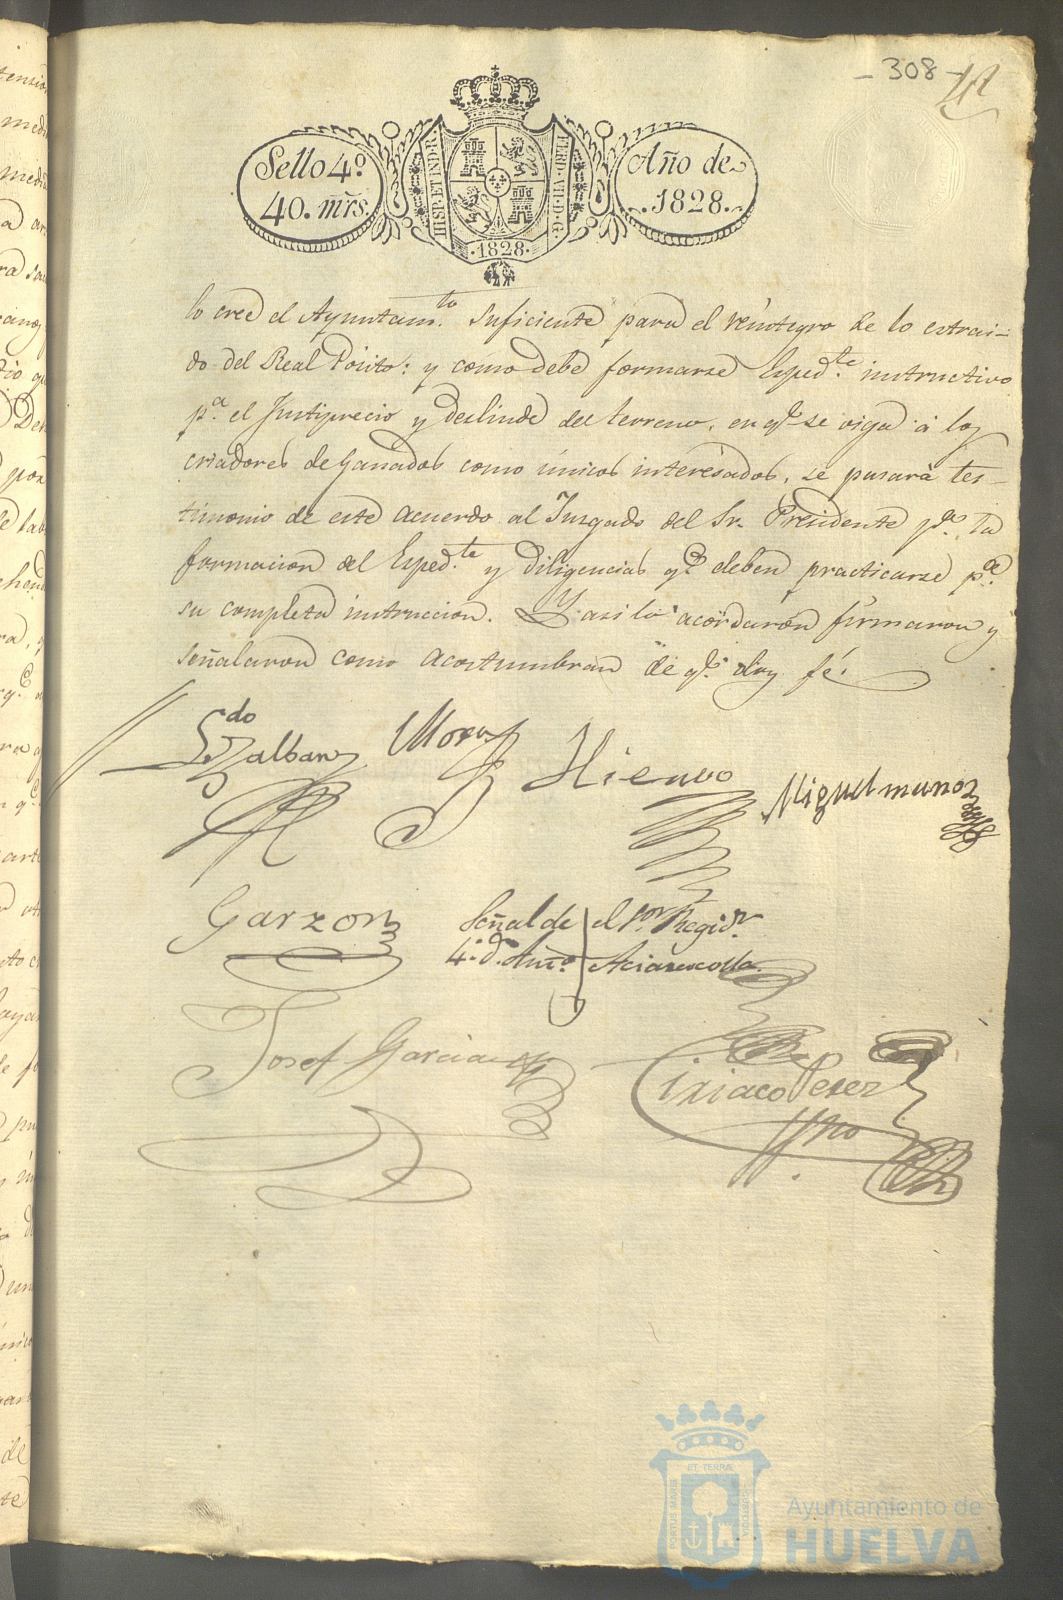 - 308 -
Sello 4º
40. mrs.
HISP. ET IND. R.
FERD. VII. D. G.
·1828·
Año de
1828.
lo cree el Ayuntam.to suficiente para el reintegro de lo extrai-
do del Real Pósito: y como debe formarse Exped.te instructivo
p.a el Justiprecio y deslinde del terreno, en q.e se oiga á los
criadores de Ganados como únicos interesados, se pasará tes-
timonio de este acuerdo al Juzgado del Sr. Presidente p.a la
formacion del Exped.te y diligencias q.e deben practicarse p.a
su completa instruccion. Y asi lo acordaron firmaron y
señalaron como acostumbran de q.e doy fé.
L.do Zalban
Mora
Hierro
Miguel munoz
Garzon
Señal de el S.or Regid.r
4.º d.n Ant.o
Josef Garcia
Ciriaco Perez
SSno
PORTUS MARIS
ET TERRAE
CUSTODIA
Ayuntamiento de
HUELVA